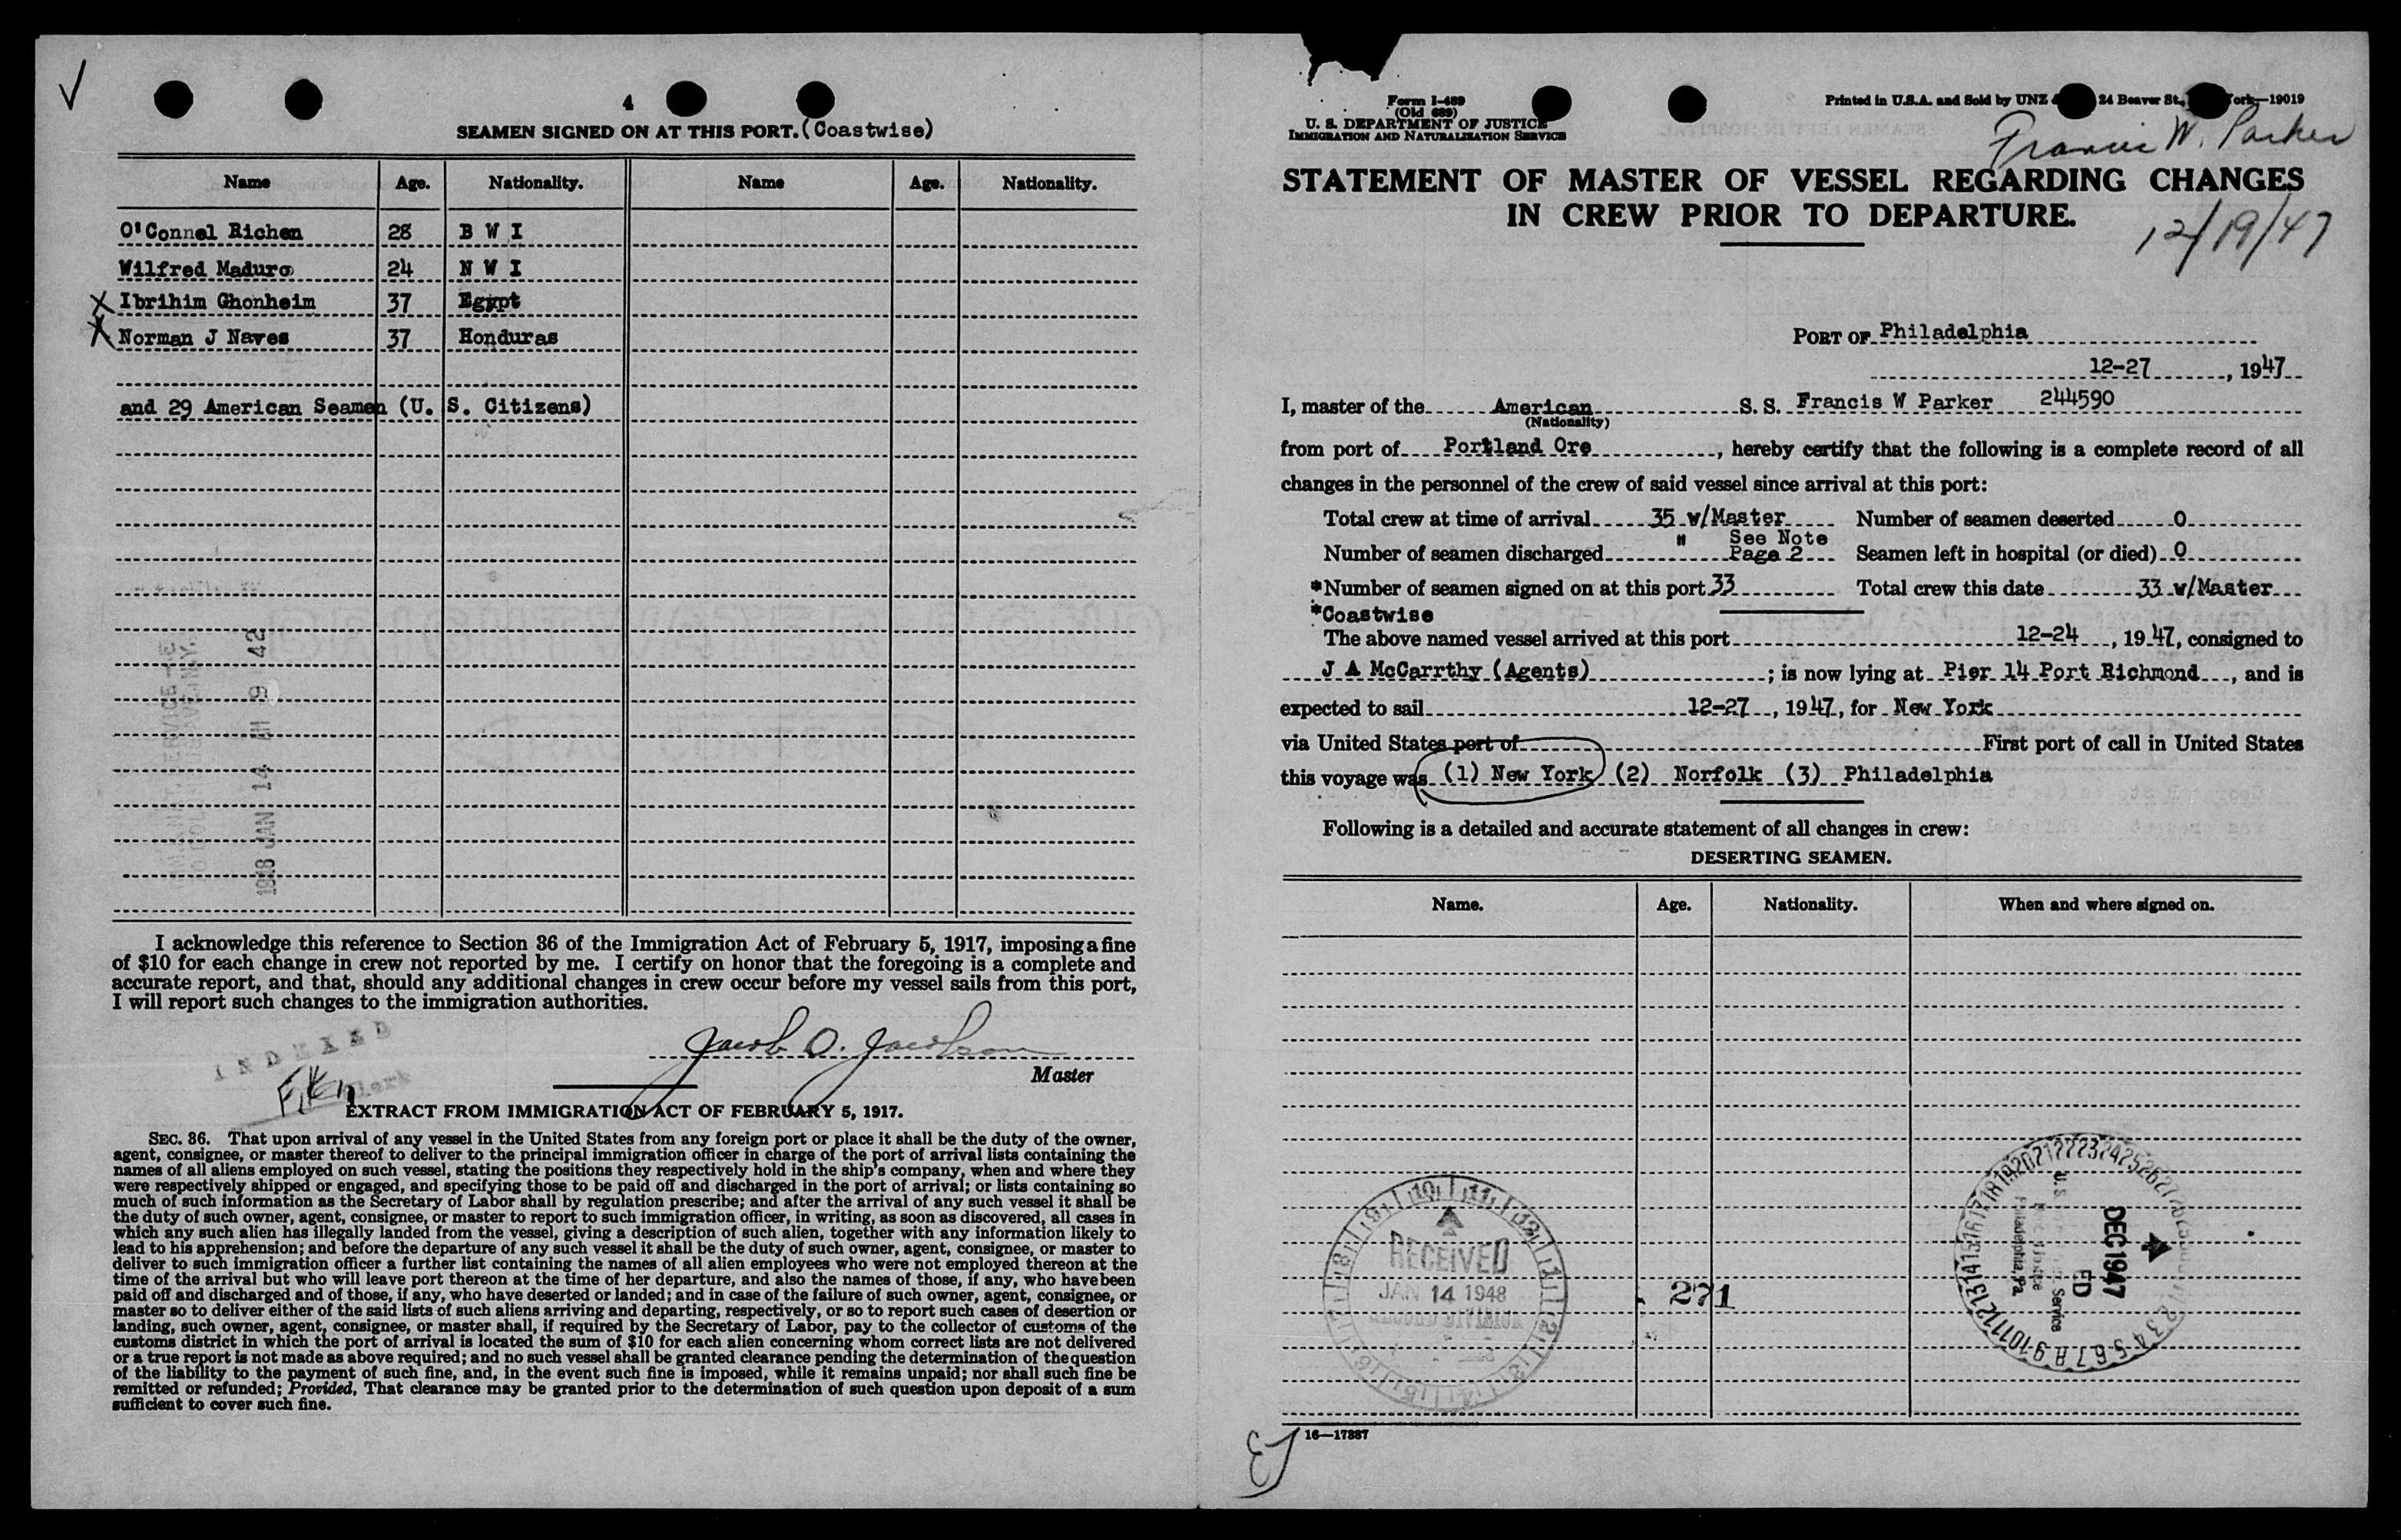 4
SEAMEN SIGNED ON AT THIS PORT. (Coastwise)
Name Age. Nationality. Name Age. Nationality.
O'Connel Richen 28 B W I
Wilfred Maduro 24 N W I
X Ibrihim Ghonheim 37 Egypt
X Norman J Naves 37 Honduras
and 29 American Seamen (U. S. Citizens)
1948 JAN 14 AM 9 42
I acknowledge this reference to Section 36 of the Immigration Act of February 5, 1917, imposing a fine
of $10 for each change in crew not reported by me. I certify on honor that the foregoing is a complete and
accurate report, and that, should any additional changes in crew occur before my vessel sails from this port,
I will report such changes to the immigration authorities.
Jacob O. Jacobson
Master
INDEXED
EXTRACT FROM IMMIGRATION ACT OF FEBRUARY 5, 1917.
SEC. 36. That upon arrival of any vessel in the United States from any foreign port or place it shall be the duty of the owner,
agent, consignee, or master thereof to deliver to the principal immigration officer in charge of the port of arrival lists containing the
names of all aliens employed on such vessel, stating the positions they respectively hold in the ship's company, when and where they
were respectively shipped or engaged, and specifying those to be paid off and discharged in the port of arrival; or lists containing so
much of such information as the Secretary of Labor shall by regulation prescribe; and after the arrival of any such vessel it shall be
the duty of such owner, agent, consignee, or master to report to such immigration officer, in writing, as soon as discovered, all cases in
which any such alien has illegally landed from the vessel, giving a description of such alien, together with any information likely to
lead to his apprehension; and before the departure of any such vessel it shall be the duty of such owner, agent, consignee, or master to
deliver to such immigration officer a further list containing the names of all alien employees who were not employed thereon at the
time of the arrival but who will leave port thereon at the time of her departure, and also the names of those, if any, who have been
paid off and discharged and of those, if any, who have deserted or landed; and in case of the failure of such owner, agent, consignee, or
master so to deliver either of the said lists of such aliens arriving and departing, respectively, or so to report such cases of desertion or
landing, such owner, agent, consignee, or master shall, if required by the Secretary of Labor, pay to the collector of customs of the
customs district in which the port of arrival is located the sum of $10 for each alien concerning whom correct lists are not delivered
or a true report is not made as above required; and no such vessel shall be granted clearance pending the determination of the question
of the liability to the payment of such fine, and, in the event such fine is imposed, while it remains unpaid; nor shall such fine be
remitted or refunded; Provided, That clearance may be granted prior to the determination of such question upon deposit of a sum
sufficient to cover such fine.
Form I-489
(Old 689)
U. S. DEPARTMENT OF JUSTICE
IMMIGRATION AND NATURALIZATION SERVICE
Printed in U.S.A. and Sold by UNZ 24 Beaver St., York—19019
Francis W. Parker
STATEMENT OF MASTER OF VESSEL REGARDING CHANGES
IN CREW PRIOR TO DEPARTURE.
12/19/47
PORT OF Philadelphia
12-27, 1947
I, master of the American S. S. Francis W Parker 244590
(Nationality)
from port of Portland Ore, hereby certify that the following is a complete record of all
changes in the personnel of the crew of said vessel since arrival at this port:
Total crew at time of arrival 35 w/Master Number of seamen deserted 0
Number of seamen discharged " See Note Page 2 Seamen left in hospital (or died) 0
*Number of seamen signed on at this port 33 Total crew this date 33 w/Master
*Coastwise
The above named vessel arrived at this port 12-24, 1947, consigned to
J A McCarrthy (Agents); is now lying at Pier 14 Port Richmond, and is
expected to sail 12-27, 1947, for New York
via United States port of First port of call in United States
this voyage was (1) New York (2) Norfolk (3) Philadelphia
Following is a detailed and accurate statement of all changes in crew:
DESERTING SEAMEN.
Name. Age. Nationality. When and where signed on.
RECEIVED
JAN 14 1948
RECORD DIVISION
271
DEC 1947
Service
Philadelphia, Pa.
16—17887